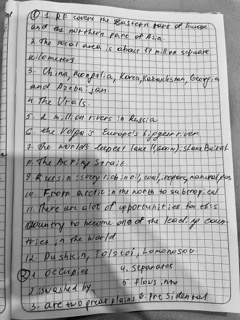 ① 1. RF covers the Eastern part of Europe
and the northern part of Asia
2. The total area is about 17 million square
kilometers
3. China, Mongolia, Korea, Kazakhstan, Georgia
and Azerbaijan
4. The Urals.
5. 2 million rivers in Russia
6. the Volga's Europe's biggest river
7. The world's deepest lake (1,600m): Lake Baikal
8. The Bering Strait
9. Russia is very rich in oil, coal, iron ore, natural gas
10. From arctic in the north to subtropical
11. There are a lot of opportunities for this
country to become one of the leading coun-
tries in the world
12. Pushkin, Tolstoi, Lomonosov
② 1. occupies 4. separates
2. is washed by 5. flows into
3. are two great plains 6. Presidential